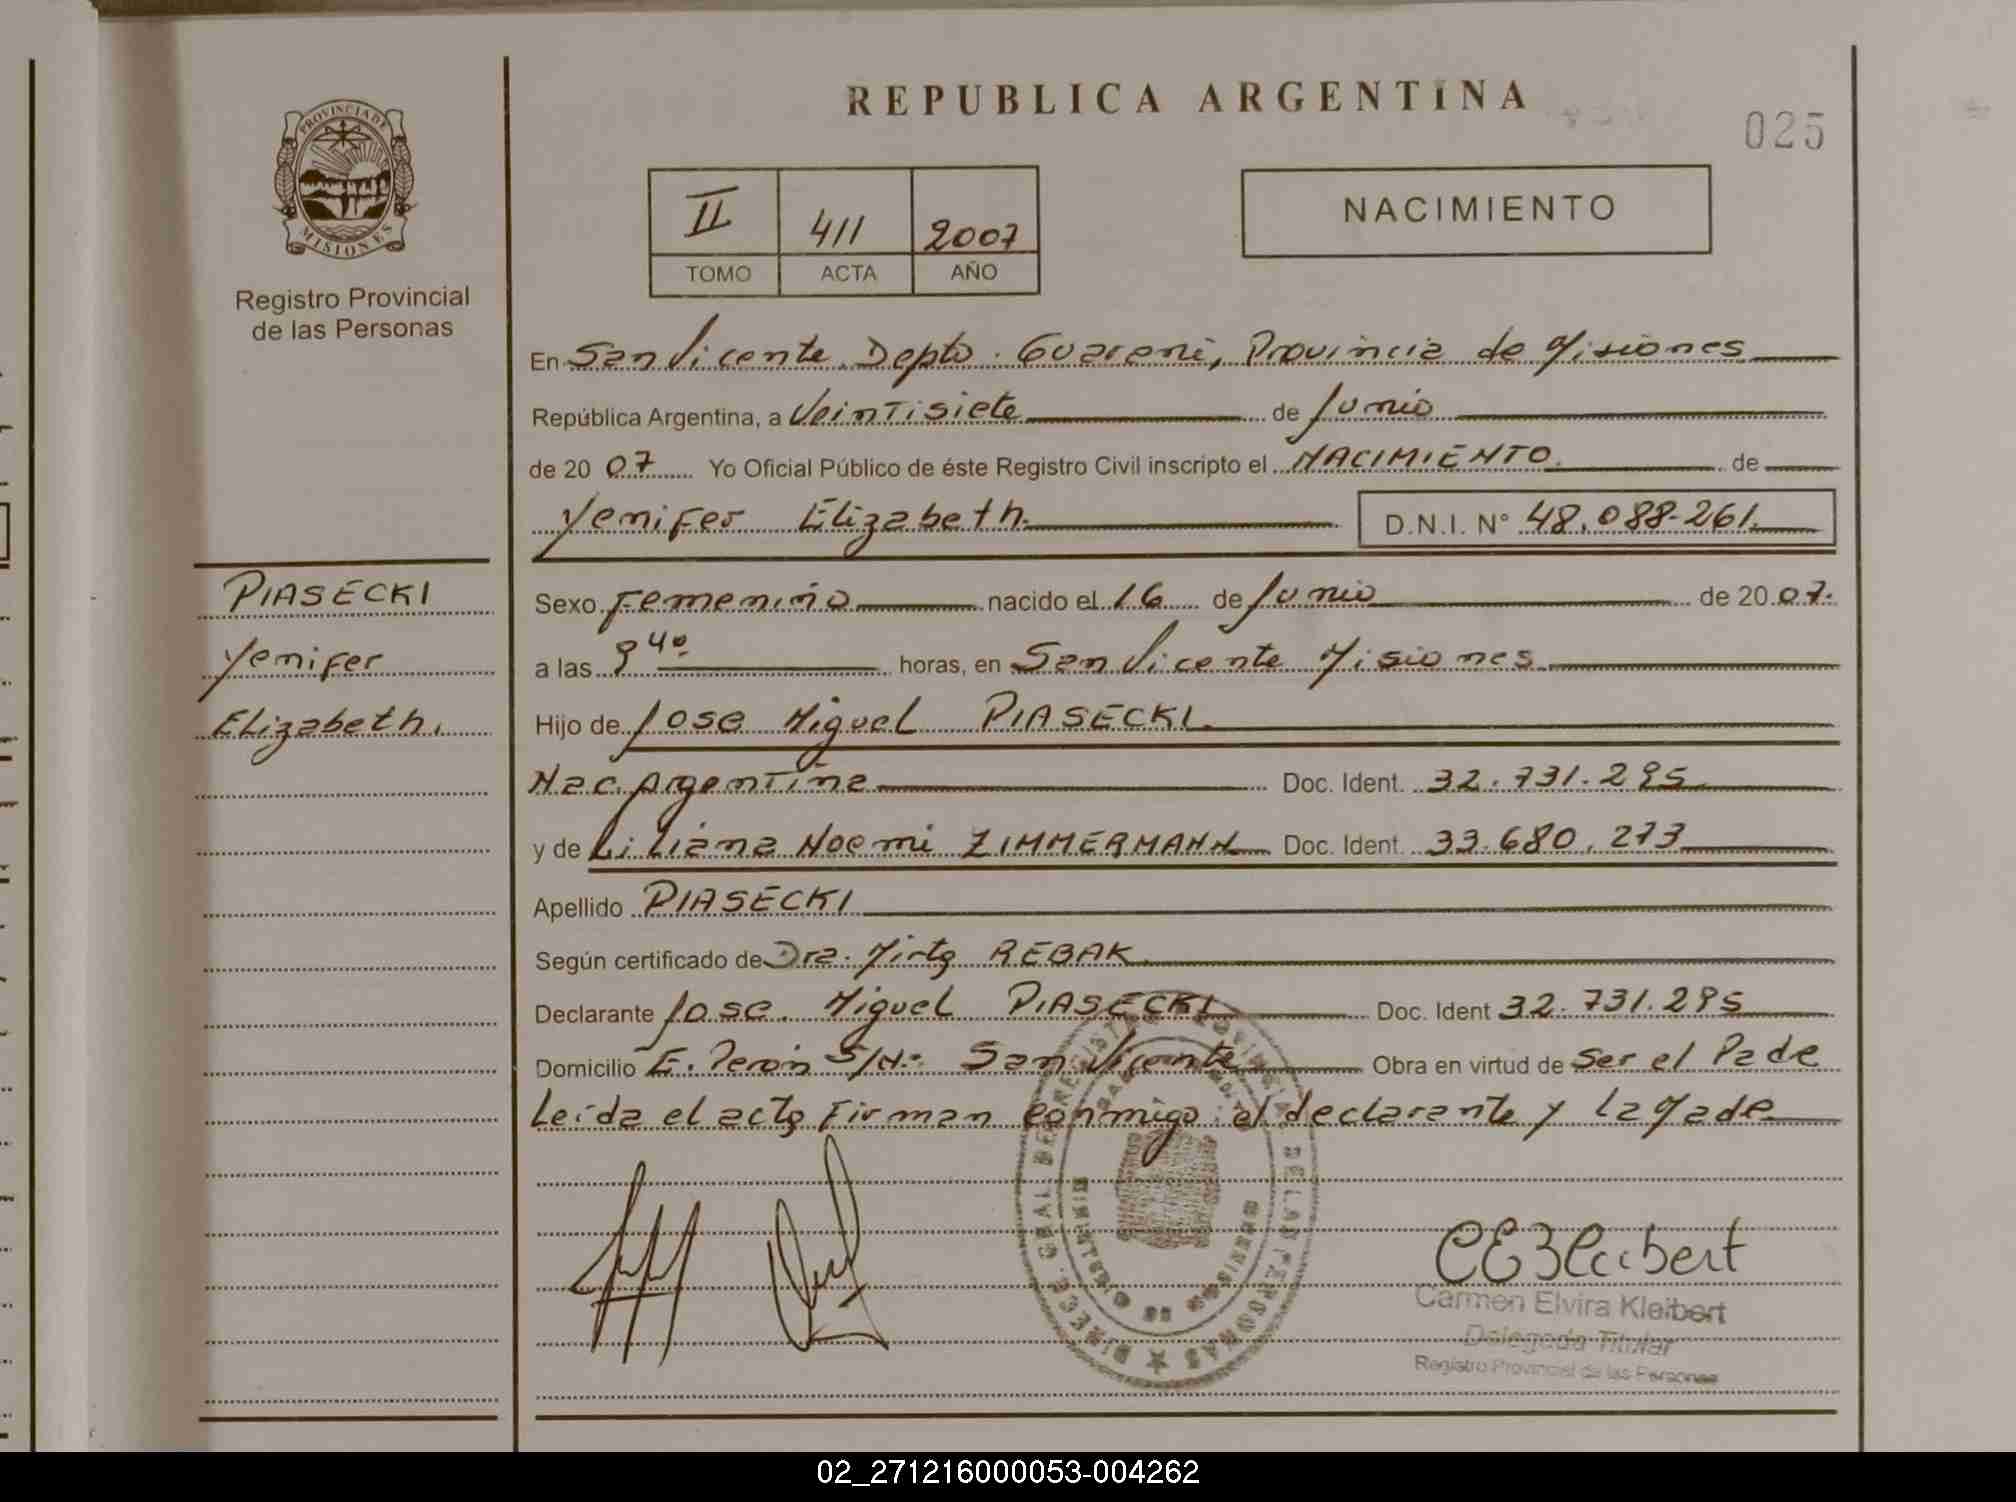 REPUBLICA ARGENTINA
025
PROVINCIA DE
MISIONES
Registro Provincial
de las Personas
II 411 2007
TOMO ACTA AÑO
NACIMIENTO
En San Vicente Depto. Guarani, Provincia de Misiones
República Argentina, a Veintisiete de Junio
de 20 07 Yo Oficial Público de éste Registro Civil inscripto el NACIMIENTO de
Yenifer Elizabeth. D.N.I. N° 48.088.261
PIASECKI
Yenifer
Elizabeth.
Sexo Femenino nacido el 16 de Junio de 20 07.
a las horas, en San Vicente Misiones
Hijo de Jose Miguel PIASECKI
Nac. Argentina Doc. Ident. 32.731.295
y de Liliana Noemi ZIMMERMANN Doc. Ident. 33.680.273
Apellido PIASECKI
Según certificado de Dra. Mirta REBAK
Declarante Jose Miguel PIASECKI Doc. Ident 32.731.295
Domicilio E. Perón S/N: San Vicente Obra en virtud de Ser el Pade
Leída el acta Firman conmigo: el declarante y la Made
CEKleibert
Carmen Elvira Kleibert
Delegada Titular
Registro Provincial de las Personas
02_271216000053-004262